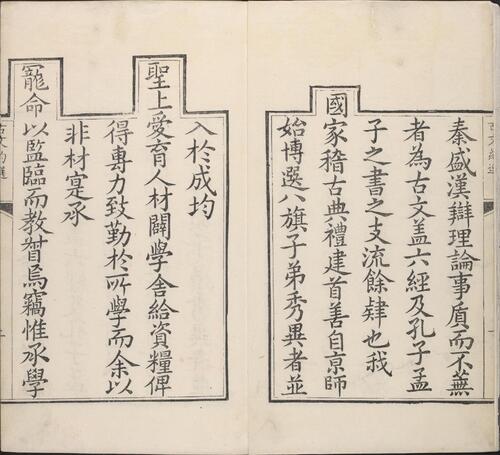 秦盛漢辯理論事質而不蕪
者為古文盖六經及孔子孟
子之書之支流餘肄也我
國家稽古典禮建首善自京師
始博選八旗子弟秀異者並
入於成均
聖上愛育人材闢學舍給資糧俾
得專力致勤於所學而余以
非材寔承
寵命以監臨而教督焉竊惟承學